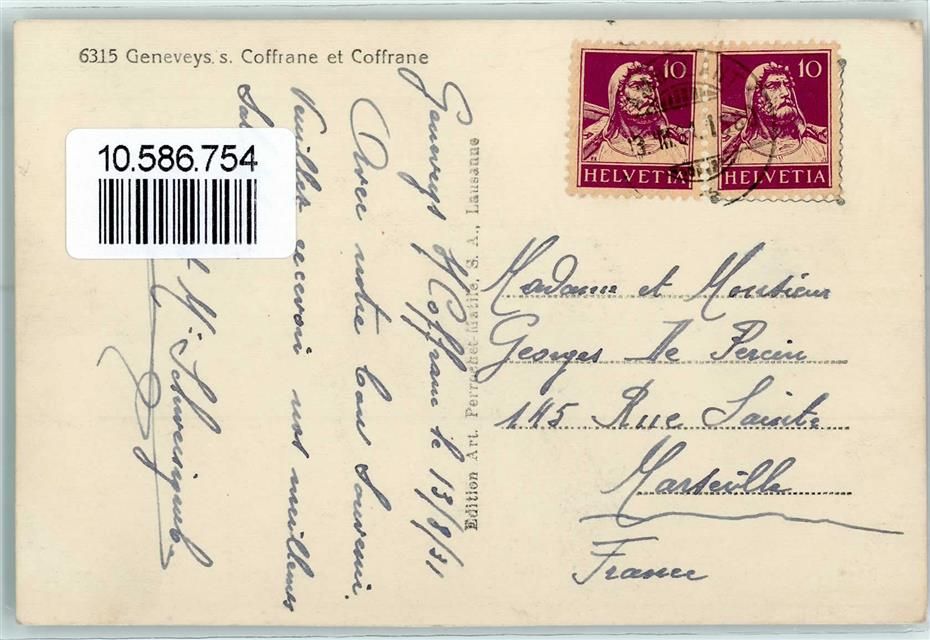 6315 Geneveys. s. Coffrane et Coffrane
10.586.754
10
HELVETIA
10
HELVETIA
Geneveys s/Coffrane le 13/8/31
Avec notre bon Souvenir.
Veuillez recevoir nos meilleures
Edition Art. Perrochet-Matile, S. A., Lausanne
Madame et Monsieur
Georges De Percin
145 Rue Sainte
Marseille
France